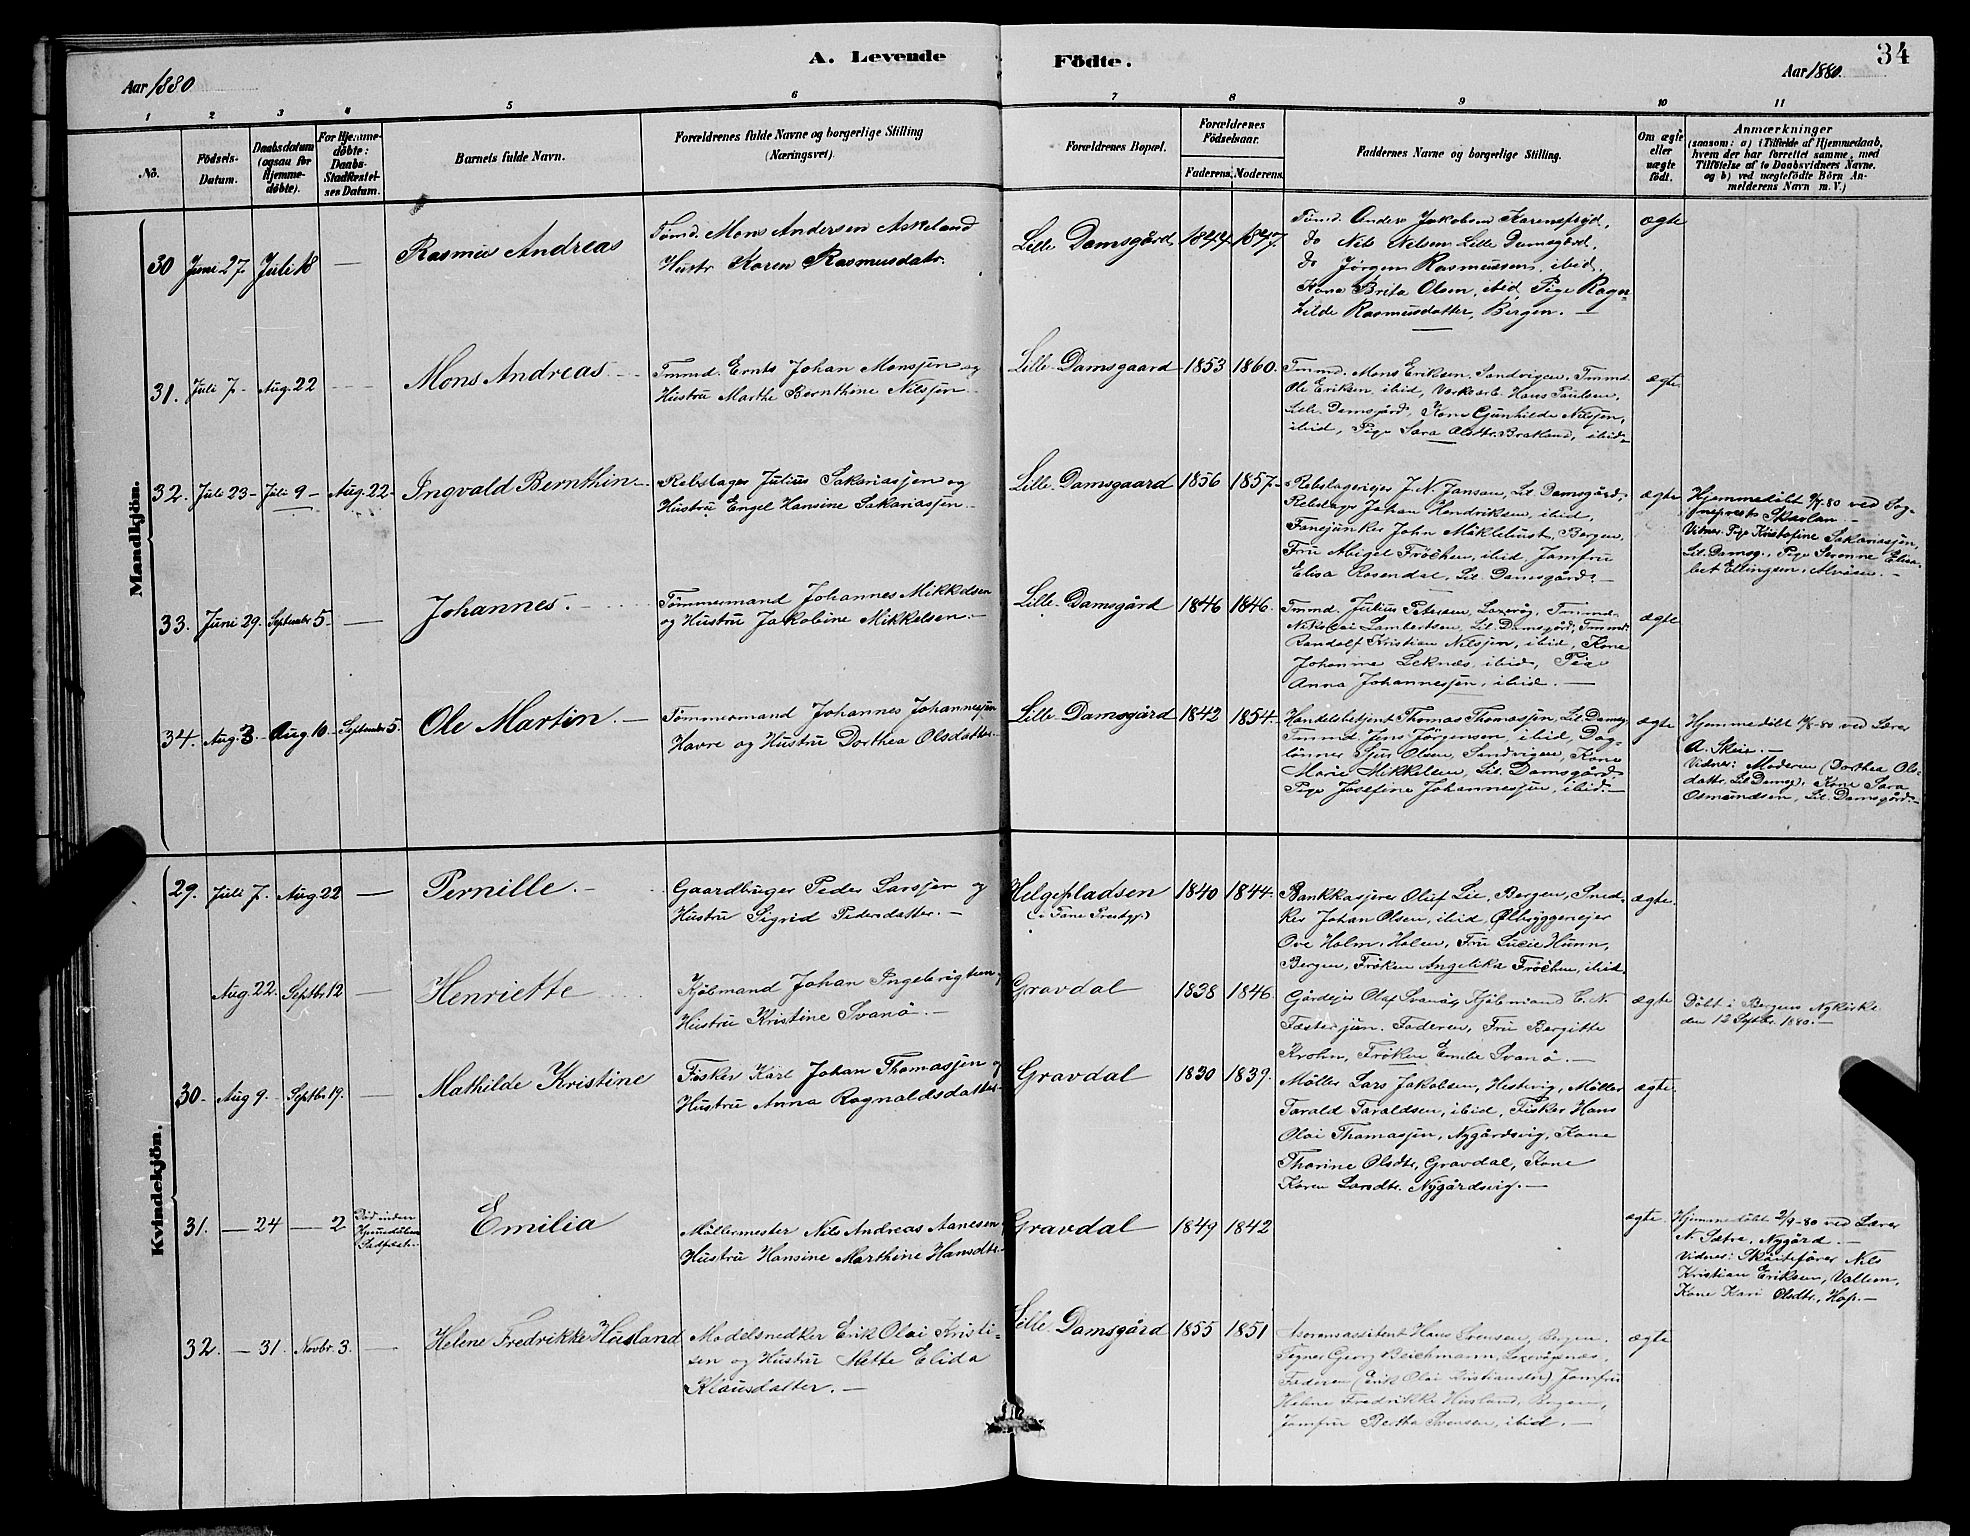 A. Levende Födte.
34
Aar 1880
Aar 1880.
1 2 3 4 5 6 7 8 9 10 11
No.
Födsels-Datum.
Daabsdatum (ogsaa for Hjemmedöbte).
For Hjemmedöbte: Daabs-Stadfæstelses Datum.
Barnets fulde Navn.
Forældrenes fulde Navne og borgerlige Stilling (Næringsvei).
Forældrenes Bopæl.
Forældrenes Födselsaar.
Faderens. Moderens.
Faddernes Navne og borgerlige Stilling.
Om ægte eller uægte födt.
Anmærkninger
(saasom: a) i Tilfælde af Hjemmedaab,
hvem der har forrettet samme, med
Tilföielse af to Daabsvidners Navne.
og b) ved uægtefödte Börn Anmelderens Navn m. V.)
Mandkjön.
30 Juni 27 Juli 18 — Rasmus Andreas
Tømd. Mons Andersen Askeland
Hustr. Karen Rasmusdatr.
Lille Damsgård 1844 1847.
Tømd. Anders Jakobsen Karensfryd,
do Nils Nelsen Lille Damsgård,
do Jørgen Rasmussen, ibid,
Kone Brita Olsen, ibid, Pige Ragn-
hilde Rasmusdatter, Bergen. —
ægte
31. Juli 7 — Aug. 22 — Mons Andreas. —
Tmmd. Ernts Johan Monsjen og
Hustru Marthe Bernthine Nilsjen
Lille Damsgaard 1853 1860.
Tmmd. Mons Eriksen, Sandvigen, Tmmd.
Ole Eriksen, ibid, Værksarb. Hans Paulsen,
Lille Damsgård, Kone Gunhilde Nilsjen,
ibid, Pige Sara Olsdtr. Brekland, ibid.
ægte
32. Juli 23 — Juli 9 — Aug. 22 — Ingvald Bernthin —
Rebslager Julius Sakariassjen og
Hustru Engel Hansine Sakariassjen —
Lille Damsgaard 1856 1857.
Rebslagereier J. N. Jansen, Lil. Damsgård,
Rebslager Johan Hendriksen, ibid,
Fanejunker John Mÿklebust, Bergen,
Fru Abigel Frøchen, ibid, Jomfru
Elisa Rosendal, Lil. Damsgård. —
ægte
Hjemmedöbt 9/7-80 ved Sog-
neprest Skavlan —
Vidner: Pige Kristofine Sakariassjen,
Lil. Damsg., Pige Serenne Elisa-
bet Ellingsen, Alvøen. —
33. Juni 29. Septembr 5. — Johannes. —
Tømmermand Johannes Mikkelsen
og Hustru Jakobine Mikkelsen. —
Lille Damsgård 1846 1846.
Tmmd. Julius Petersen, Laxevåg, Tmmd.
Nikolai Lambertsen, Lil. Damsgård, Tmmd.
Randolf Kristian Nilsjen, ibid, Kone
Johanne Leknes, ibid, Pige
Anna Johannesjen, ibid. —
ægte
34. Aug. 3 — Aug. 10 — Septembr 5. Ole Martin. —
Tømmermand Johannes Johannesjen
Havre og Hustru Dorthea Olsdatter. —
Lille Damsgård 1842 1854.
Handelsbetjent Thomas Thomasjen, Lil. Damsg.
Tmmd. Jens Jörgensen, ibid, Dag-
lønner Sjur Olsen, Sandvigen, Kone
Marie Mikkelsen, Lil. Damsgård,
Pige Josefine Johannesjen, ibid. —
ægte
Hjemmedöbt 10/8-80 ved Lærer
A. Skeie. —
Vidner: Moderen (Dorthea Ols-
dattr. Lil. Damsg.), Kone Sara
Osmundsen, Lil. Damsgård. —
Kvindekjön.
29. Juli 7. Aug. 22 — Pernille. —
Gaardbruger Peder Larsjen og
Hustru Sigrid Pedersdatter. —
Helgepladsen
(i Fane Prestgj.)
1840 1844.
Bankkasjerer Oluf Lie, Bergen, Sned-
ker Johan Olsen, ibid, Ølbryggerieier
Ove Holm, Holen, Fru Lucie Hunn,
Bergen, Frøken Angelika Frøchen, ibid.
ægte
Aug. 22. Septbr. 12 — Henriette
Kjøbmand Johan Ingebrigtsen
Hustru Kristine Svanö. —
Gravdal 1838 1846.
Gårdejer Olaf Svanö, Kjøbmand C. N.
Fæster jun. Faderen, Fru Bergitte
Krohn, Frøken Emilie Svanö. —
ægte
Döbt i Bergens Nykirke
den 12 Septbr. 1880. —
30. Aug. 9. Septbr. 19. — Mathilde Kristine
Fisker Karl Johan Thomasjen og
Hustru Anna Ragnaldsdatter —
Gravdal 1830 1839.
Møller Lars Jakobsen, Hestevig, Møller
Tarald Taraldsen, ibid, Fisker Hans
Olai Thomasjen, Nygårdsvig, Kone
Thorine Olsdtr, Gravdal, Kone
Karen Larsdtr. Nygårdsvig. —
ægte
31. — 24 — 2 Död inden
Hjemmedåbens
Stadfæst.
Emilia
Møllermester Nils Andreas Aanesen
Hustru Hansine Marthine Hansdtr. —
Gravdal 1849 1842
ægte.
Hjemmedöbt 2/9-80 ved Lærer
N. Sætre, Nygård. —
Vidner: Sköitefører Nils
Kristian Eriksen, Vallem,
Kone Kari Olsdtr., Hop. —
32. — 31. Novbr. 3. — Helene Fredrikke Husland
Modelsnedker Erik Olai Kristi-
sen og Hustru Mette Elida
Klausdatter. —
Lille Damsgård 1855 1851
Assistent Hans Svensen, Bergen,
Tegner Georg Beichmann, Laxevågsnæs,
Faderen (Erik Olai Kristiansen) Jomfru
Helene Fredrikke Husland, Bergen,
Jomfru Bertha Svensen, ibid. —
ægte